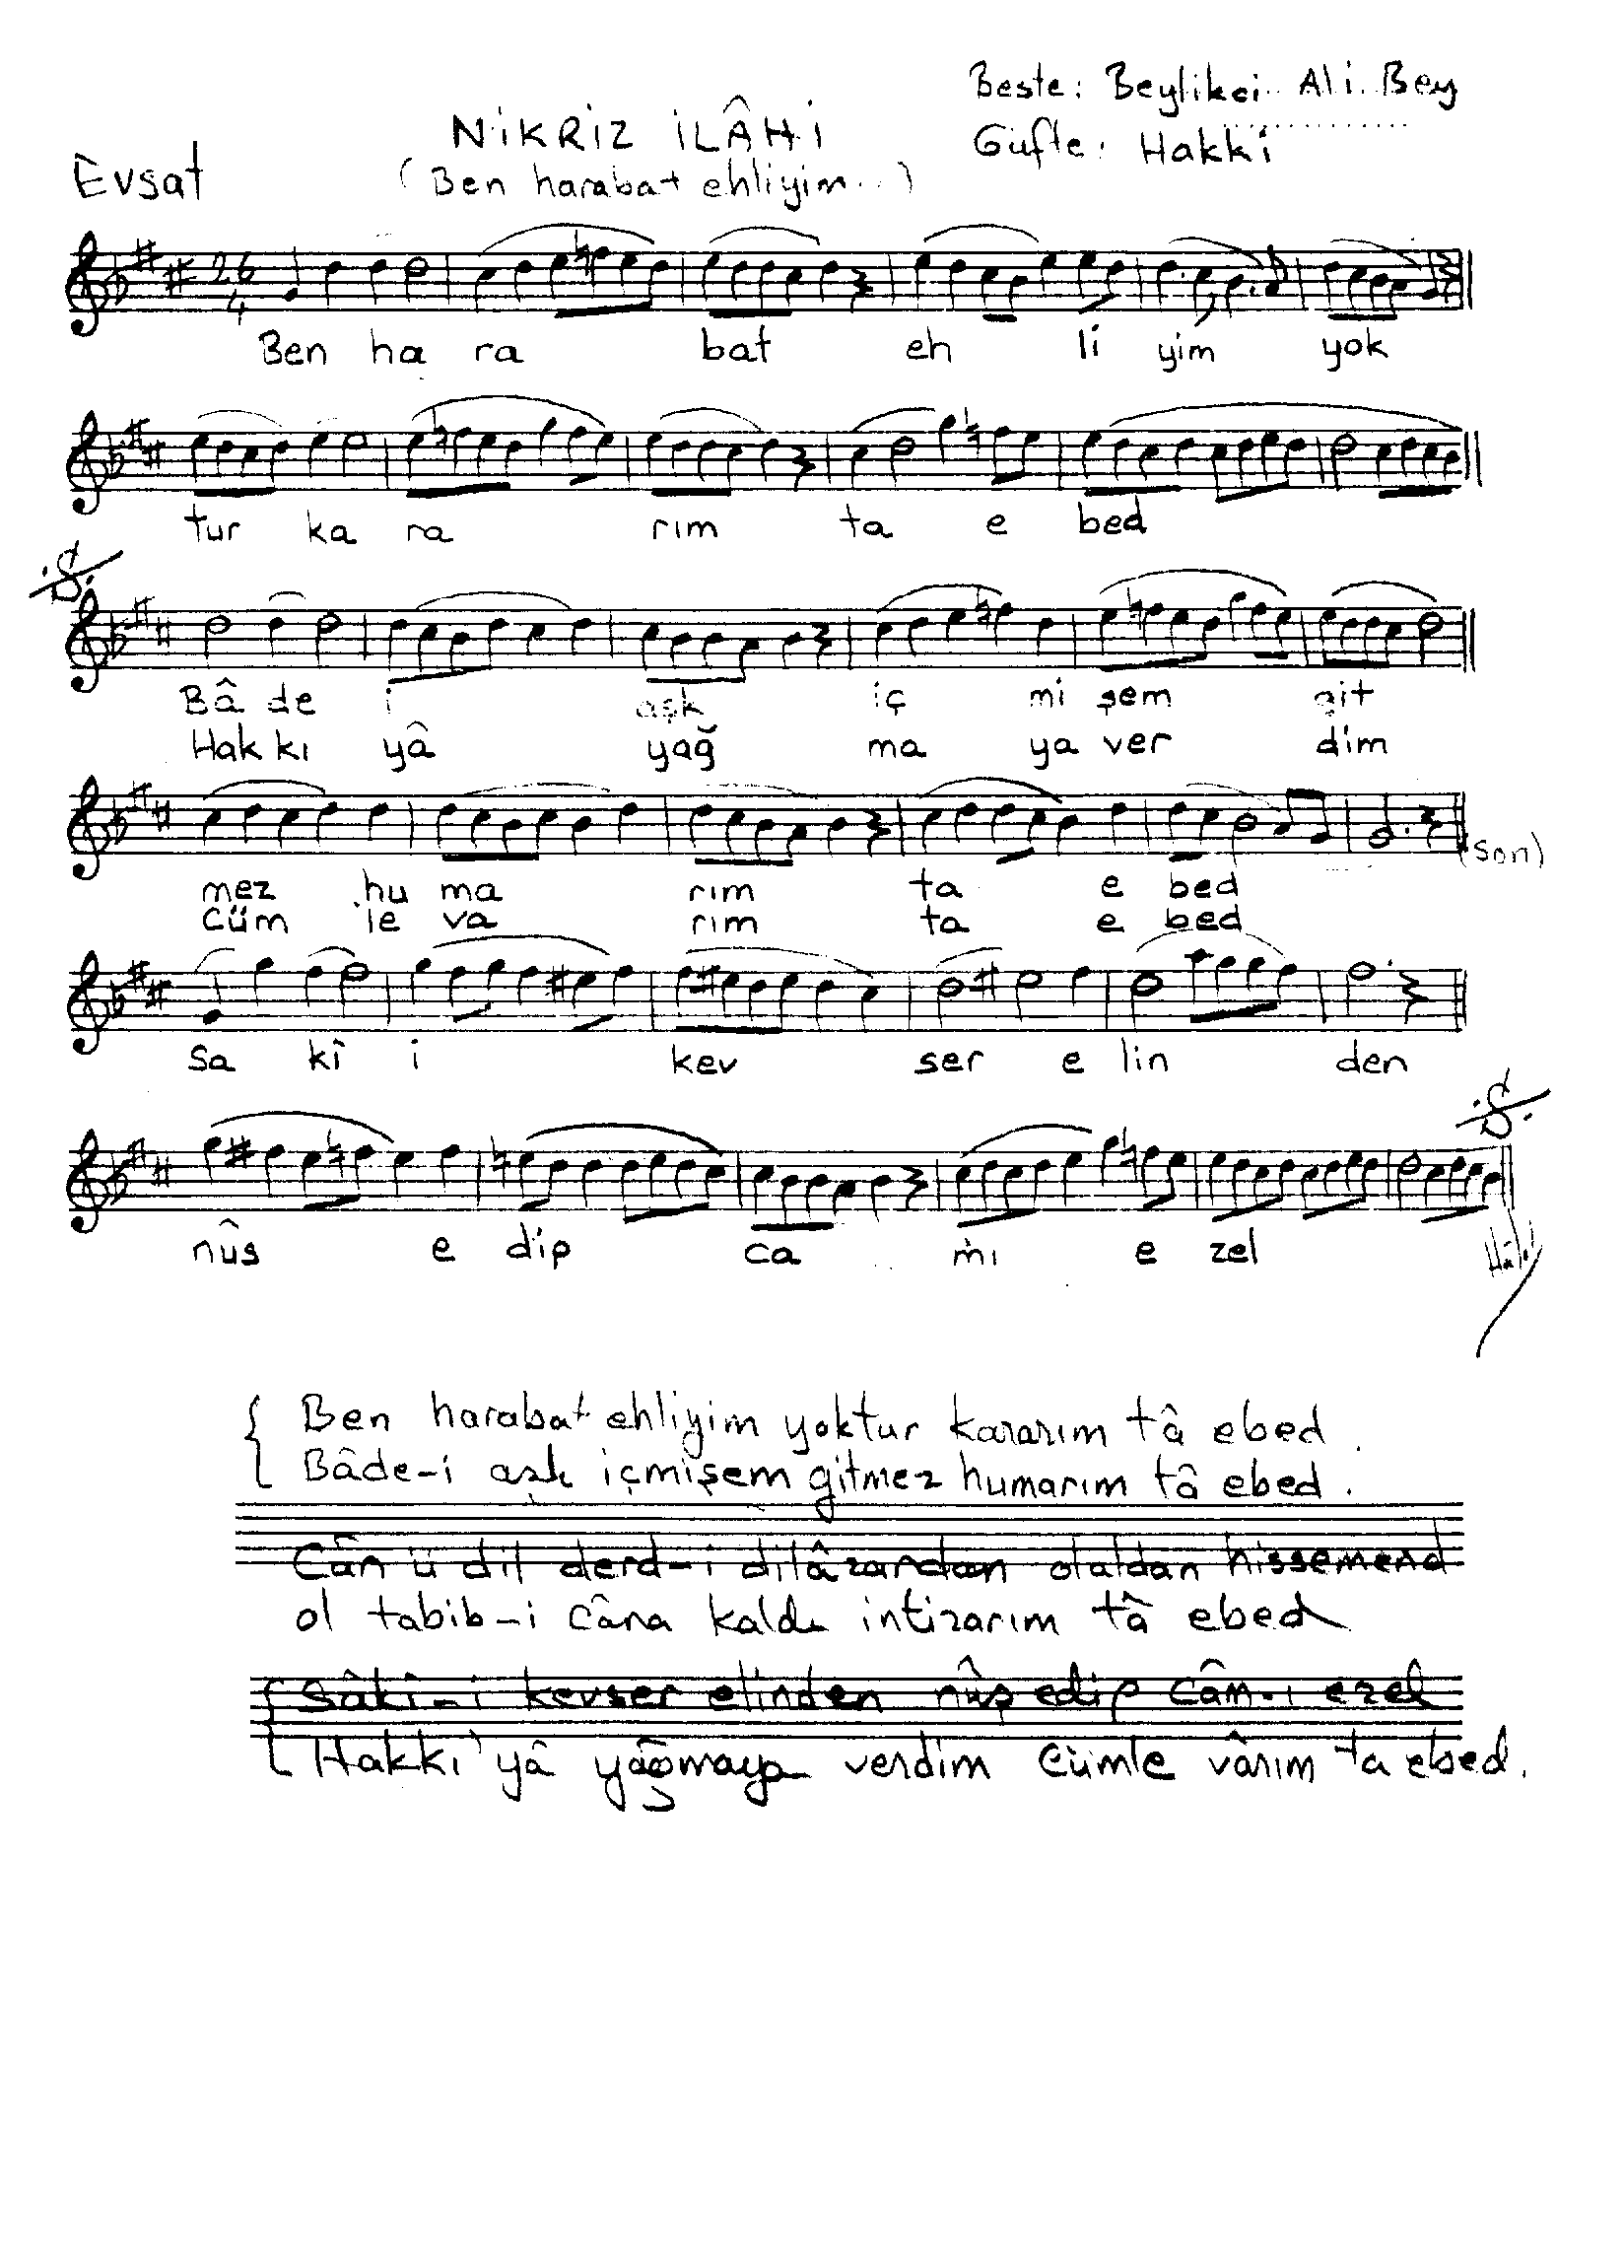 Beste: Beylikci Ali Bey
NİKRİZ İLÂHİ
Güfte: Hakkî
Evsat
(Ben harabat ehliyim...)
26
4
Ben ha ra bat eh li yim yok
tur ka ra rım ta e bed
Bâ de i aşk iç mi şem git
Hak kı yâ yağ ma ya ver dim
(Son)
mez hu ma rım ta e bed
Cüm le va rım ta e bed
Sa kî i kev ser e lin den
nûş e dip ca mı e zel
Ben harabat ehliyim yoktur kararım tâ ebed
Bâde-i aşk içmişem gitmez humarım tâ ebed.
Cân ü dil derd-i dilâzardan olaldan hissemend
ol tabib-i câna kaldı intizarım tâ ebed
Sâkî-i kevser elinden nûş edip câm-ı ezel
Hakkı'yâ yağmaya verdim cümle vârım ta ebed.